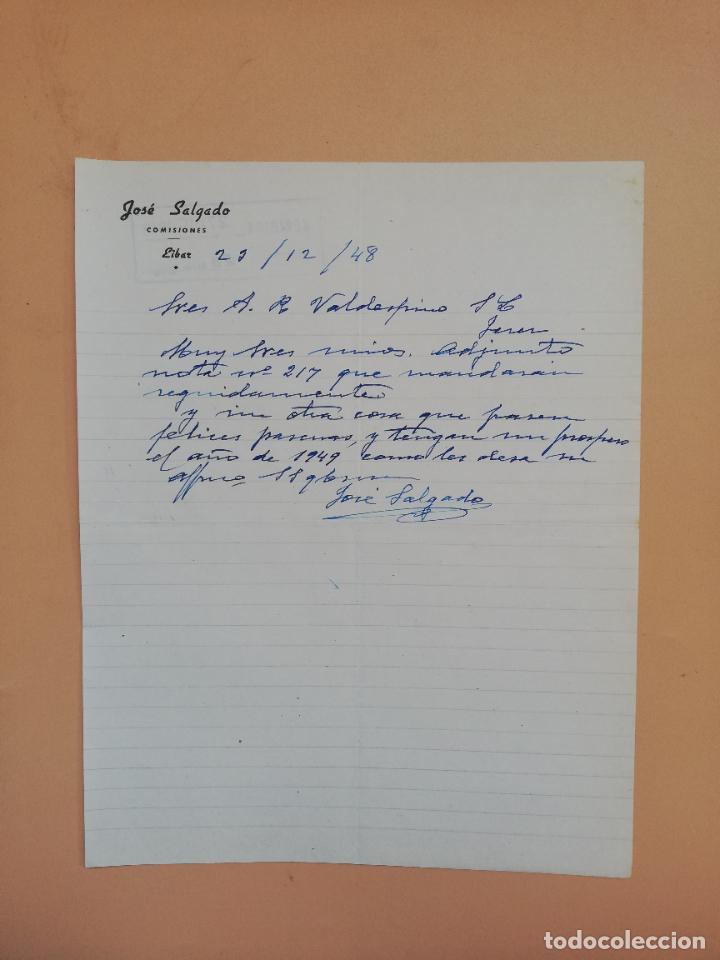 José Salgado
COMISIONES
Eibar 23 / 12 / 48
Sres A. R Valdespino
Jerez
Muy Sres mios. Adjunto
nota nº 217 que mandarán
seguidamente
y sin otra cosa que pasen
felices pascuas, y tengan un prospero
el año de 1949 como les desea su
affmo
José Salgado
todocoleccion
todocoleccion.net